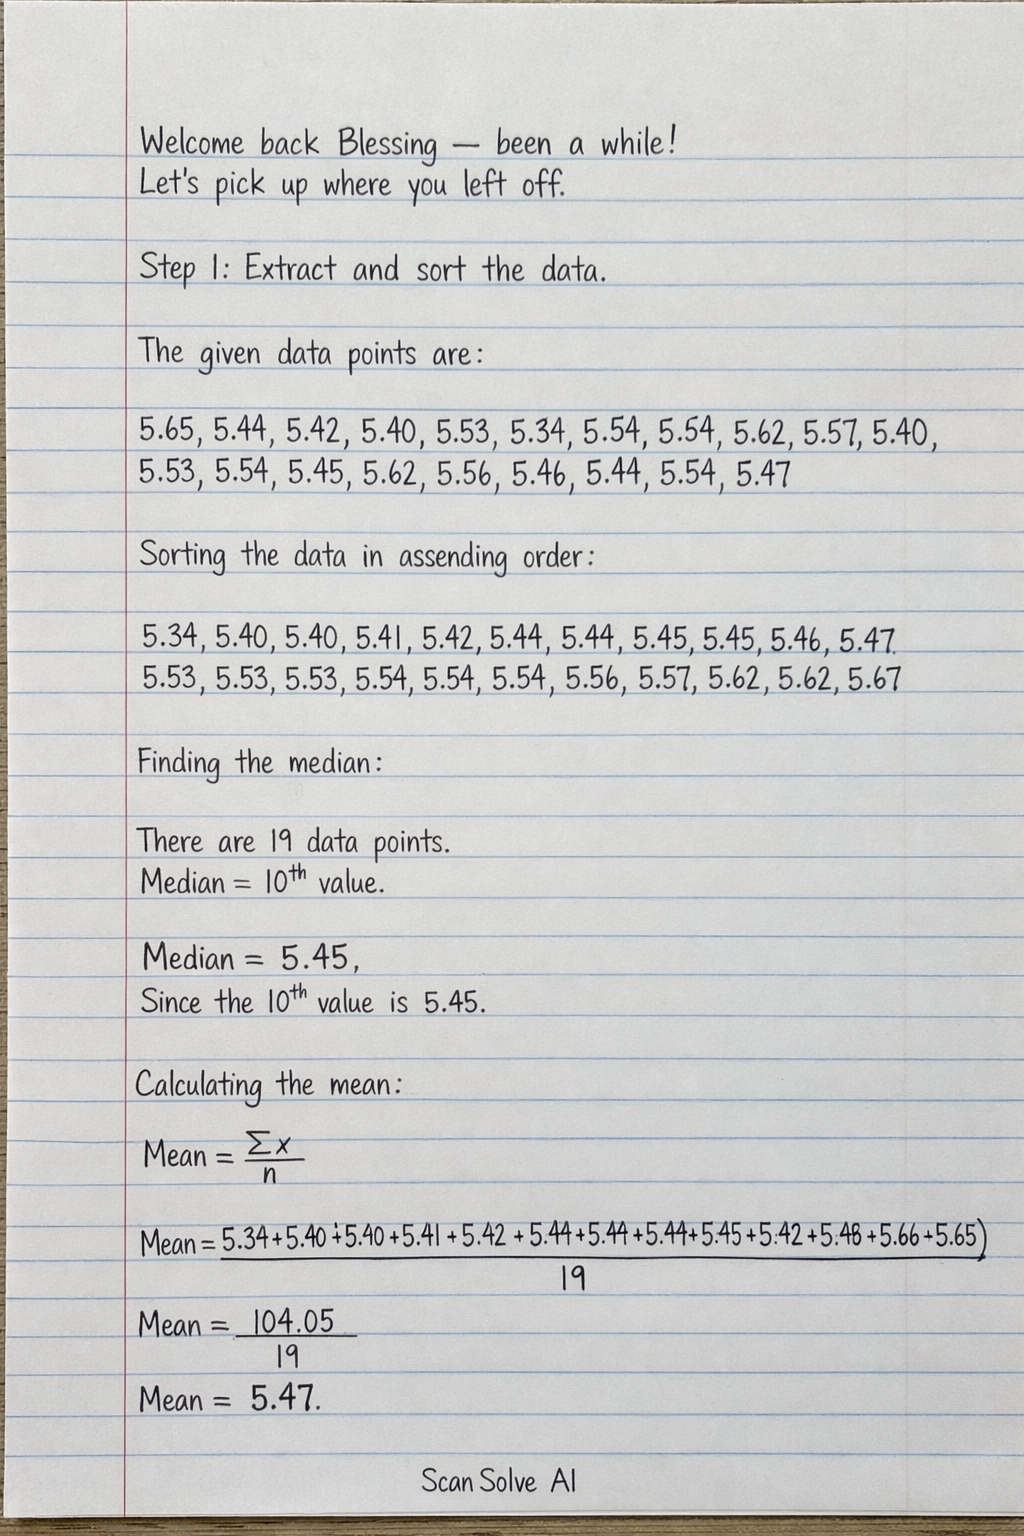 Welcome back Blessing — been a while!
Let's pick up where you left off.
Step 1: Extract and sort the data.
The given data points are:
5.65, 5.44, 5.42, 5.40, 5.53, 5.34, 5.54, 5.54, 5.62, 5.57, 5.40,
5.53, 5.54, 5.45, 5.62, 5.56, 5.46, 5.44, 5.54, 5.47
Sorting the data in assending order:
5.34, 5.40, 5.40, 5.41, 5.42, 5.44, 5.44, 5.45, 5.45, 5.46, 5.47.
5.53, 5.53, 5.53, 5.54, 5.54, 5.54, 5.56, 5.57, 5.62, 5.62, 5.67
Finding the median:
There are 19 data points.
Median = 10th value.
Median = 5.45,
Since the 10th value is 5.45.
Calculating the mean:
Mean = Σx
n
Mean = 5.34+5.40+5.40+5.41+5.42+5.44+5.44+5.44+5.45+5.42+5.48+5.66+5.65)
19
Mean = 104.05
19
Mean = 5.47.
Scan Solve AI